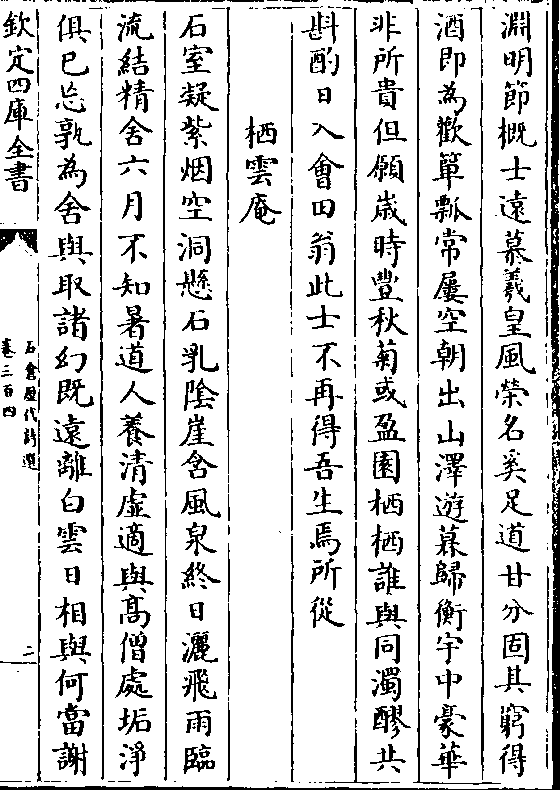 淵明節概士遠慕羲皇風榮名奚足道甘分固其窮得
酒即為歡簞瓢常屢空朝出山澤遊暮歸衡宇中豪華
非所貴但願歲時豐秋菊或盈園栖栖誰與同濁醪共
斟酌日入會田翁此士不再得吾生焉所從
栖雲庵
石室凝紫烟空洞懸石乳陰崖含風泉終日灑飛雨臨
流結精舍六月不知暑道人養清虛適與高僧處垢淨
俱已忘孰為舍與取諸幻既遠離白雲日相與何當謝
欽定四庫全書
石倉歷代詩選
卷三百四
二